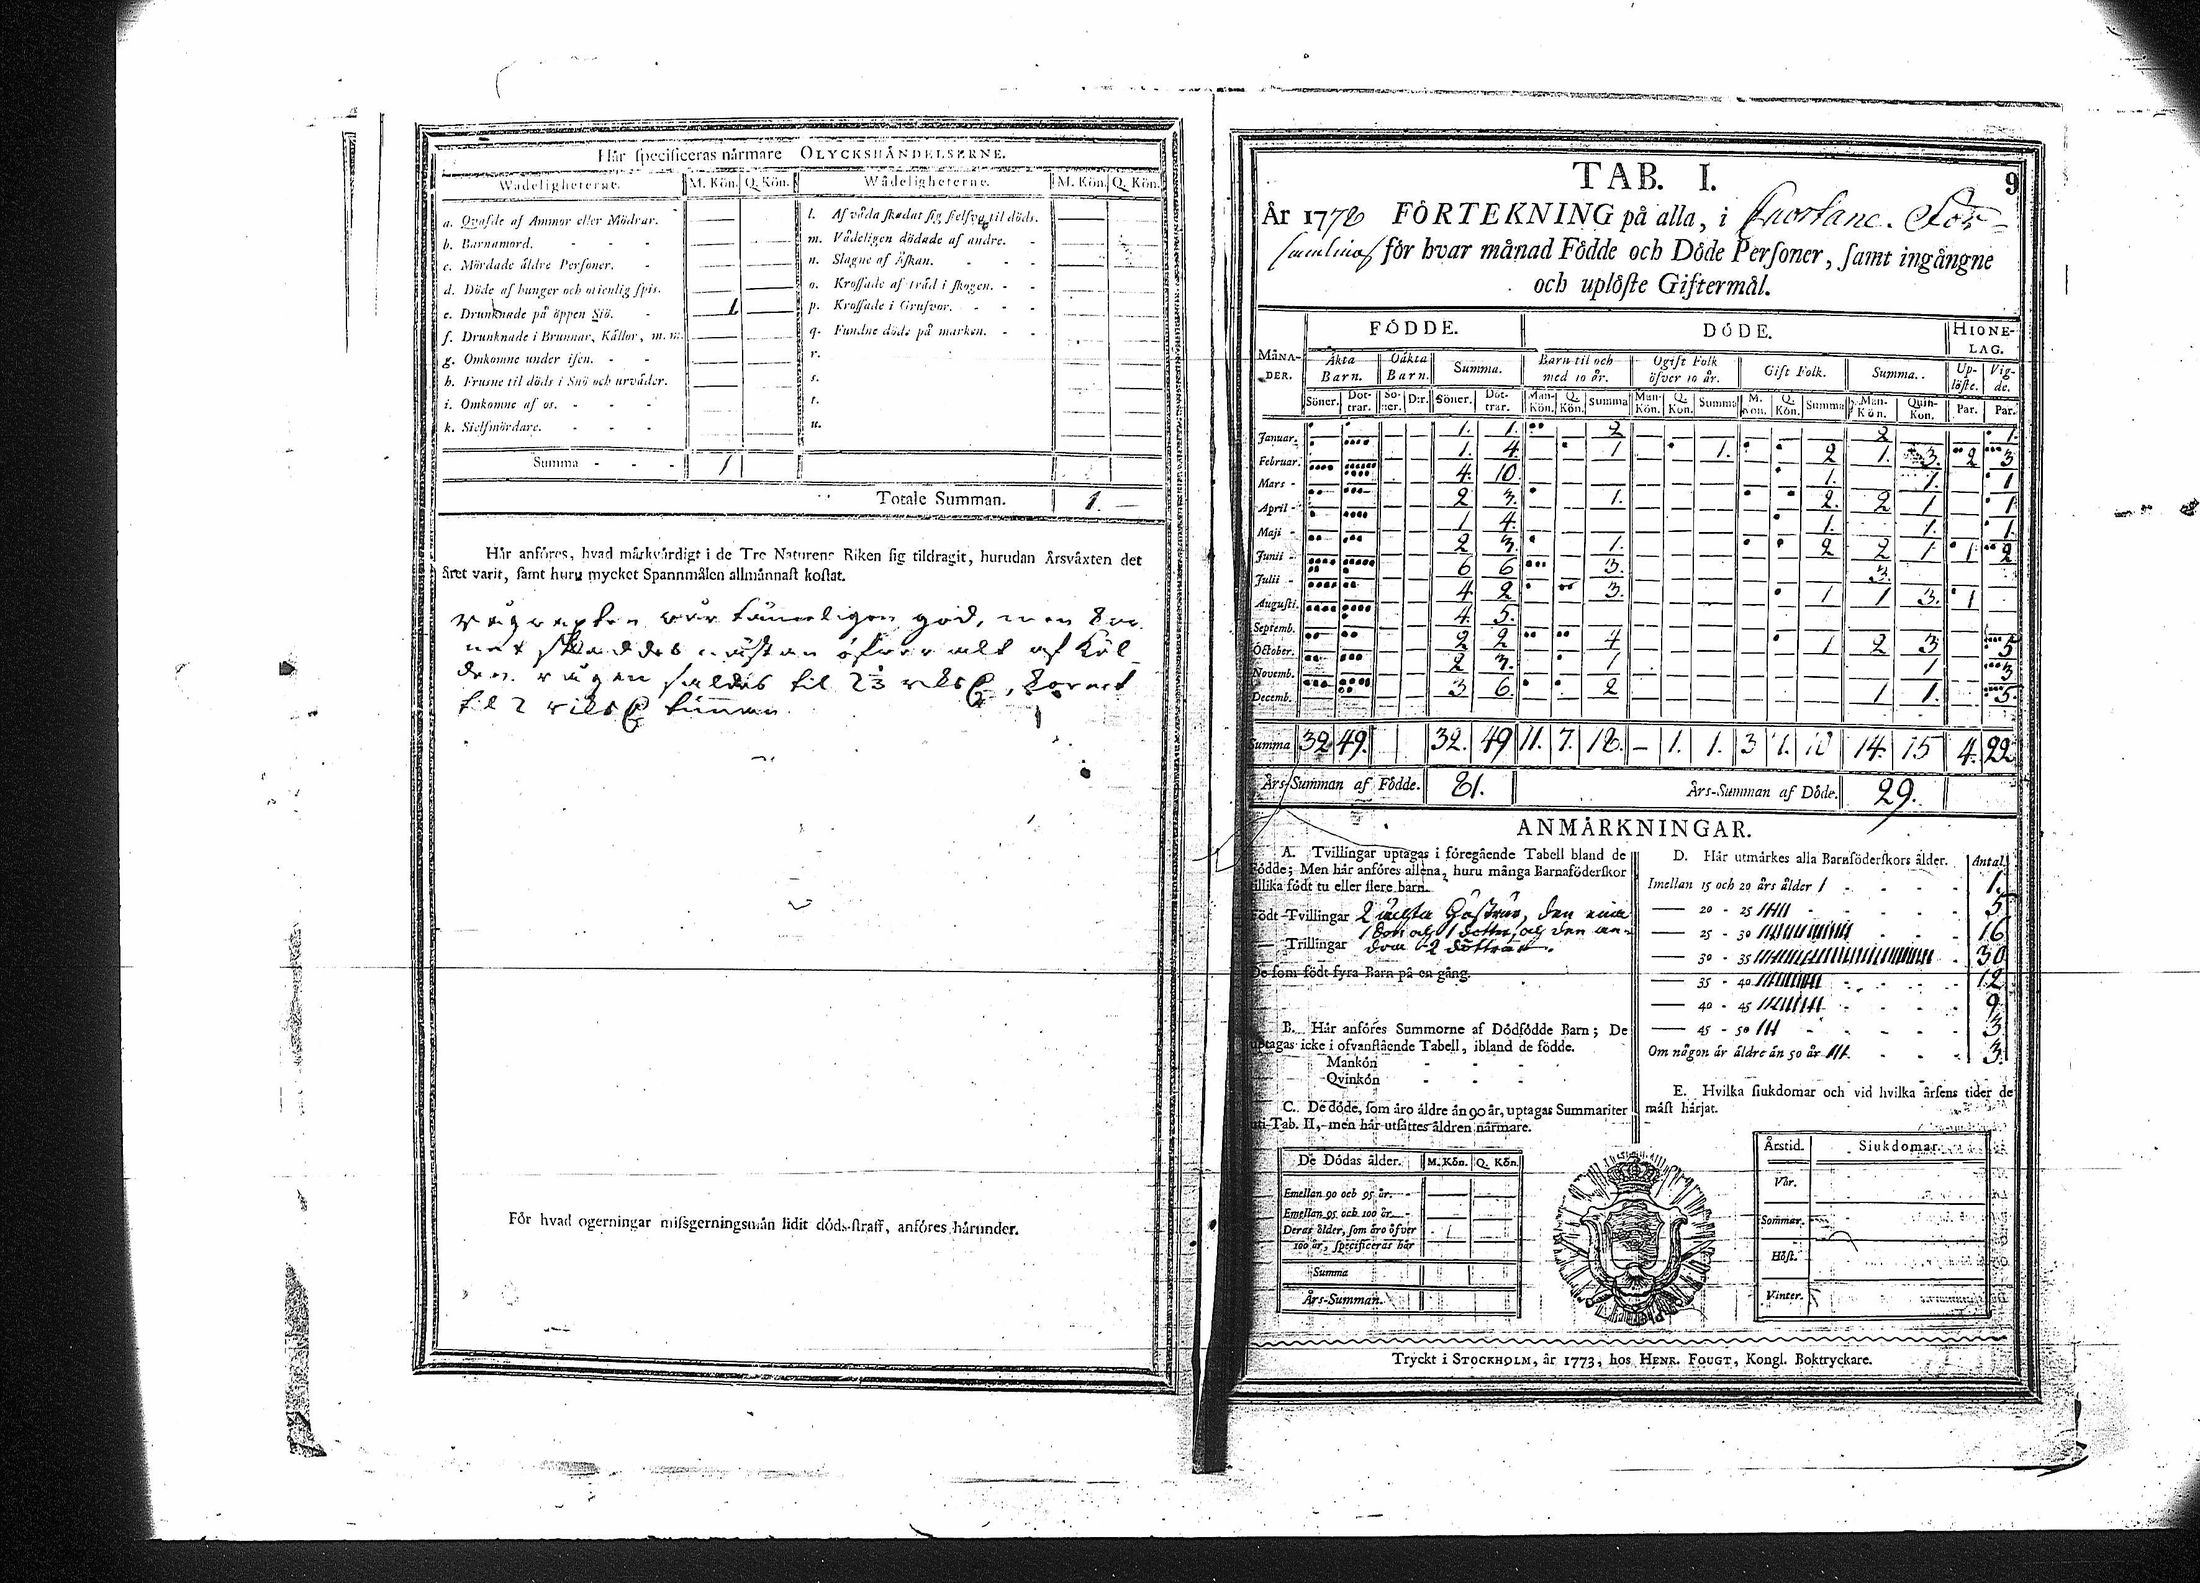 Här specificeras närmare OLYCKSHÄNDELSERNE.
Wådeligheterne. M. Kön. Q. Kön. Wådeligheterne. M. Kön. Q. Kön.
a. Qvafde af Ammor eller Mödrar. — — l. Af våda skadat sig sielfve til döds. — —
b. Barnamord. — — m. Vådeligen dödade af andre. — —
c. Mördade äldre Personer. — — n. Slagne af Åskan. — —
d. Döde af hunger och otienlig spis. — — o. Krossade af träd i skogen. — —
e. Drunknade på öppen Siö. 1 — p. Krossade i Grufvor. — —
f. Drunknade i Brunnar, Källor, m. m. — — q. Fundne döde på marken. — —
g. Omkomne under isen. — — r.
h. Frusne til döds i Snö och urväder. — — s.
i. Omkomne af os. — — t.
k. Sielfmördare. — — u.
Summa 1
Totale Summan. 1. —
Här anföres, hvad märkvärdigt i de Tre Naturens Riken sig tildragit, hurudan Årsväxten det
året varit, samt huru mycket Spannmålen allmännast kostat.
var tämeligen god, men
nästan öfver alt af Köl
den rågen såldes til
til 2 tunnan.
För hvad ogerningar missgerningsmän lidit döds-straff, anföres härunder.
TAB. I. 9
År 1778 FÖRTEKNING på alla, i För-
samling för hvar månad Födde och Döde Personer, samt ingångne
och uplöste Giftermål.
FÖDDE. DÖDE. HIONE-
LAG.
MÅNA-
DER. Äkta
Barn. Oäkta
Barn. Summa. Barn til och
med 10 år. Ogift Folk
öfver 10 år. Gift Folk. Summa. Up-
löste. Vig-
de.
Söner. Döt-
trar. Sö-
ner. D:r. Söner. Döt-
trar. Man-
Kön. Q.
Kön. Summa Man-
Kön. Q.
Kön. Summa M.
Kön. Q.
Kön. Summa Man-
Kön. Quin-
Kön. Par. Par.
Januar. 1. 1. 2 2 1.
Februar. 1. 4. 1 1. 2 1. 3. 2 3
Mars 4. 10. 1. 1. 1
April 2 3. 1. 2. 2 1 1
Maji 1 4. 1. 1. 1.
Junii 2 3. 1. 2 2 1. 1 2
Julii 6 6 3. 3.
Augusti. 4 2 3. 1 1 3. 1
Septemb. 4. 5.
October. 2 2 4 1 2 3 5
Novemb. 2 3. 1 1 3
Decemb. 3 6. 2 1 1. 5.
Summa 32 49. 32. 49 11. 7. 18. — 1. 1. 3 7. 10 14. 15 4. 22
Års-Summan af Födde. 81. Års-Summan af Döde. 29.
ANMÄRKNINGAR.
A. Tvillingar uptagas i föregående Tabell bland de
Födde; Men här anföres allena, huru många Barnaföderskor
tillika födt tu eller flere barn.
Födt Tvillingar 2 ächta Hustrur, den ena
1 Son och 1 dotter, och den an-
— Trillingar dra 2 döttrar.
De som födt fyra Barn på en gång.
B. Här anföres Summorne af Dödfödde Barn; De
uptagas icke i ofvanstående Tabell, ibland de födde.
Mankön
Qvinkön
C. De döde, som äro äldre än 90 år, uptagas Summariter
uti Tab. II, men här utsättes åldren närmare.
De Dödas ålder. M. Kön. Q. Kön.
Emellan 90 och 95 år.
Emellan 95 och 100 år.
Deras ålder, som äro öfver
100 år, specificeras här
Summa
Års-Summan.
D. Här utmärkes alla Barnföderskors ålder. Antal.
Imellan 15 och 20 års ålder 1.
— 20 - 25 5
— 25 - 30 16
— 30 - 35 30
— 35 - 40 12
— 40 - 45 9
— 45 - 50 3
Om någon är äldre än 50 år 3.
E. Hvilka siukdomar och vid hvilka årsens tider de
mäst härjat.
Årstid. Siukdomar.
Vår.
Sommar.
Höst.
Vinter.
Tryckt i STOCKHOLM, år 1773, hos HENR. FOUGT, Kongl. Boktryckare.